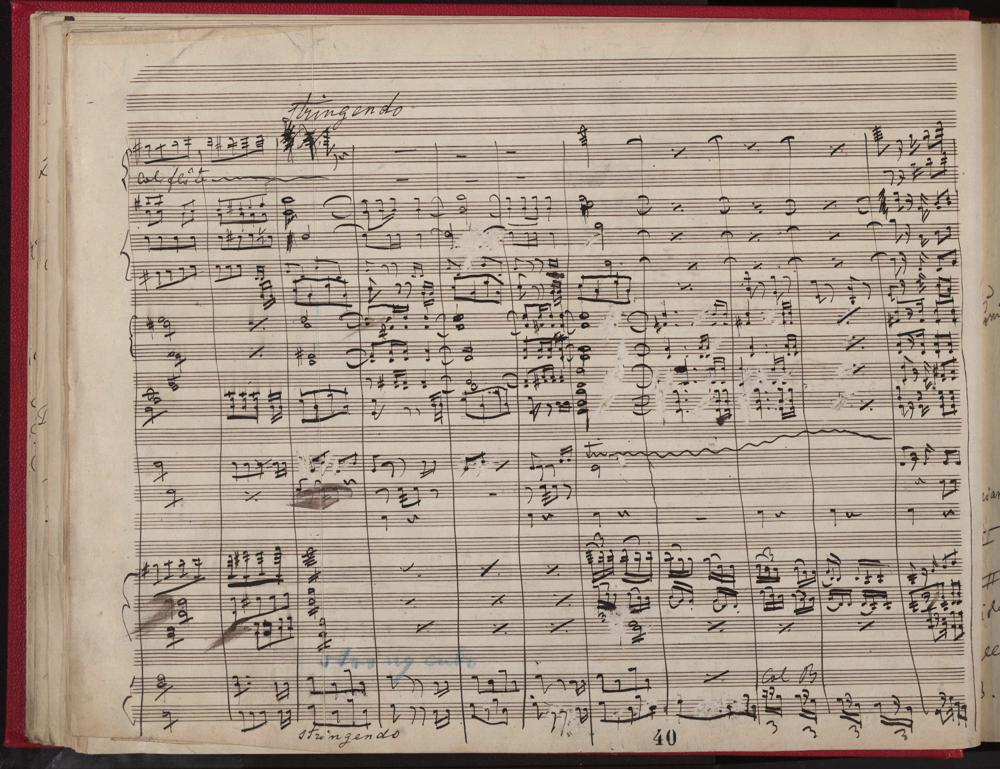 stringendo
col flûte
tr
stringendo
Col B
3 3 3 3
stringendo
40